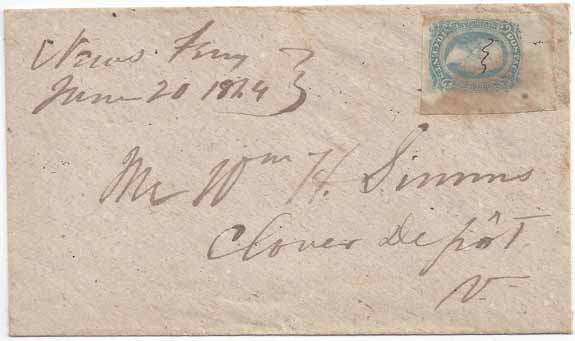 News Ferry
June 20 1864
Mr Wm H. Simms
Clover Depôt
V